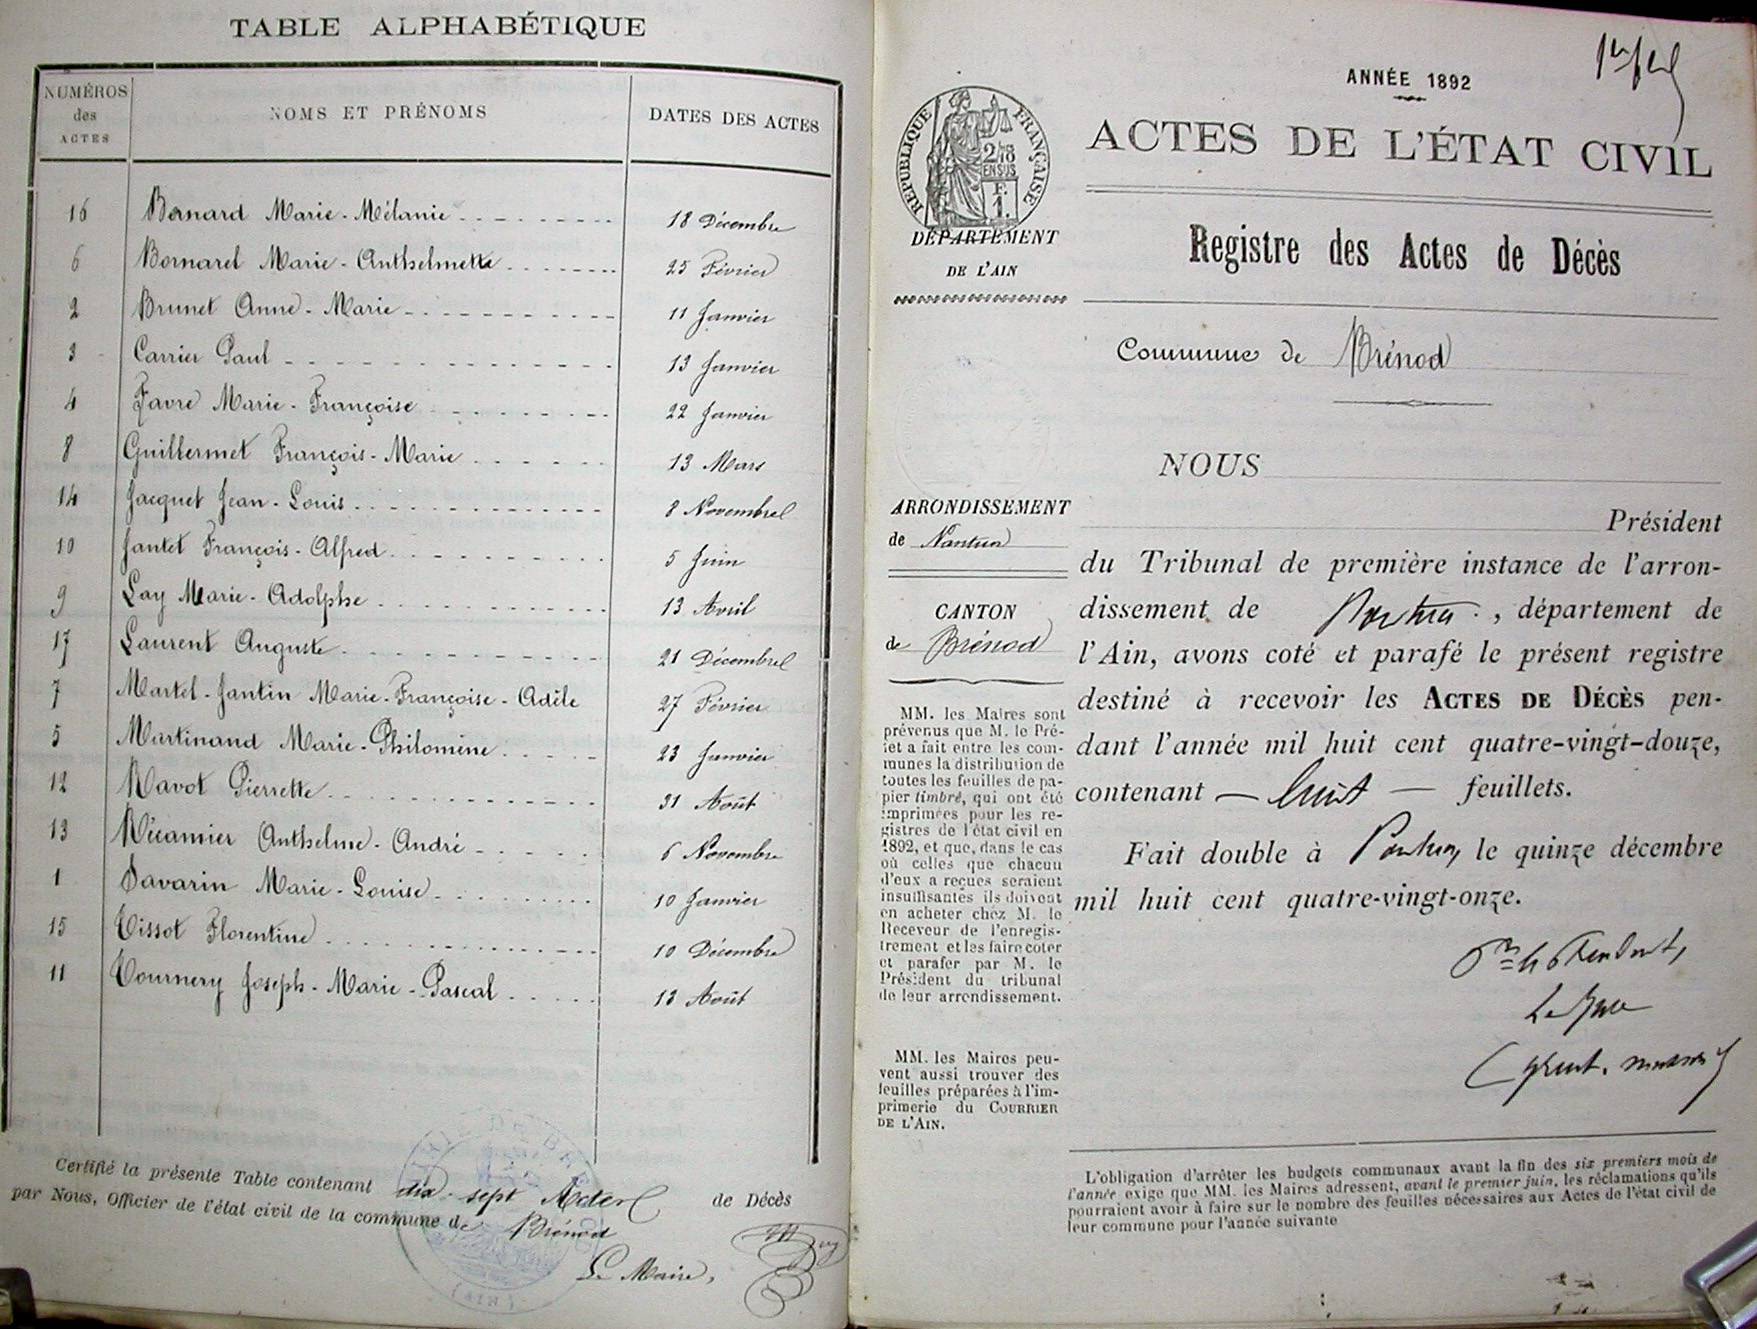 TABLE ALPHABÉTIQUE
NUMÉROS des ACTES
NOMS ET PRÉNOMS
DATES DES ACTES
16 Bernard Marie-Mélanie 18 Décembre
6 Bornarel Marie-Anthelmette 25 Février
2 Brunet Anne-Marie 11 Janvier
3 Carrier Paul 13 Janvier
4 Favre Marie-Françoise 22 Janvier
8 Guillermet François-Marie 13 Mars
14 Jacquet Jean-Louis 8 Novembre
10 Jantet François-Alfred 5 Juin
9 Lay Marie-Adolphe 13 Avril
17 Laurent Auguste 21 Décembre
7 Martel-Jantin Marie-Françoise-Adèle 27 Février
5 Martinand Marie-Philomène 23 Janvier
12 Ravot Pierrette 31 Août
13 Récamier Anthelme-André 6 Novembre
1 Savarin Marie-Louise 10 Janvier
15 Tissot Florentine 10 Décembre
11 Tournery Joseph-Marie-Pascal 13 Août
Certifié la présente Table contenant dix-sept Actes de Décès
par Nous, Officier de l'état civil de la commune de Brénod
Le Maire,
(AIN)
ANNÉE 1892
ACTES DE L'ÉTAT CIVIL
RÉPUBLIQUE FRANÇAISE
F.
1.
DÉPARTEMENT
DE L'AIN
Registre des Actes de Décès
Commune de Brénod
NOUS
Président
ARRONDISSEMENT
de Nantua
CANTON
de Brénod
du Tribunal de première instance de l'arron-
dissement de Nantua, département de
l'Ain, avons coté et parafé le présent registre
destiné à recevoir les ACTES DE DÉCÈS pen-
dant l'année mil huit cent quatre-vingt-douze,
contenant — huit — feuillets.
Fait double à Nantua, le quinze décembre
mil huit cent quatre-vingt-onze.
Le Juge
MM. les Maires sont
prévenus que M. le Pré-
fet a fait entre les com-
munes la distribution de
toutes les feuilles de pa-
pier timbré, qui ont été
imprimées pour les re-
gistres de l'état civil en
1892, et que, dans le cas
où celles que chacun
d'eux a reçues seraient
insuffisantes ils doivent
en acheter chez M. le
Receveur de l'enregis-
trement et les faire coter
et parafer par M. le
Président du tribunal
de leur arrondissement.
MM. les Maires peu-
vent aussi trouver des
feuilles préparées à l'im-
primerie du COURRIER
DE L'AIN.
L'obligation d'arrêter les budgets communaux avant la fin des six premiers mois de
l'année exige que MM. les Maires adressent, avant le premier juin, les réclamations qu'ils
pourraient avoir à faire sur le nombre des feuilles nécessaires aux Actes de l'état civil de
leur commune pour l'année suivante